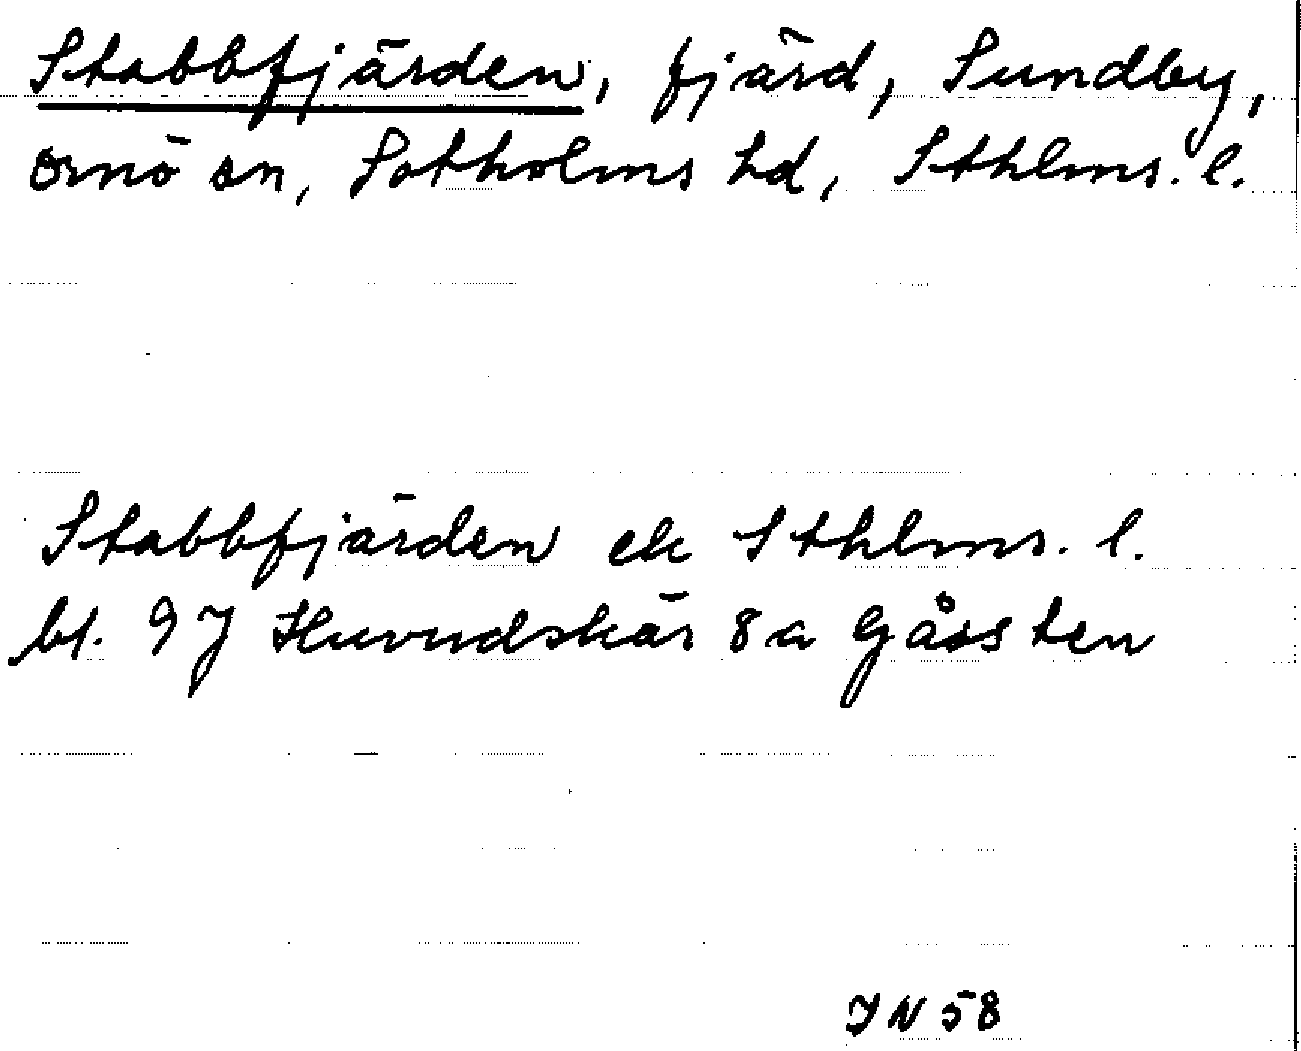 Stabbfjärden, fjärd, Sundby,
Ornö sn, Sotholms hd, Sthlms. l.
Stabbfjärden ek Sthlms. l.
bl. 9J Huvudskär 8a Gåssten
JN 58